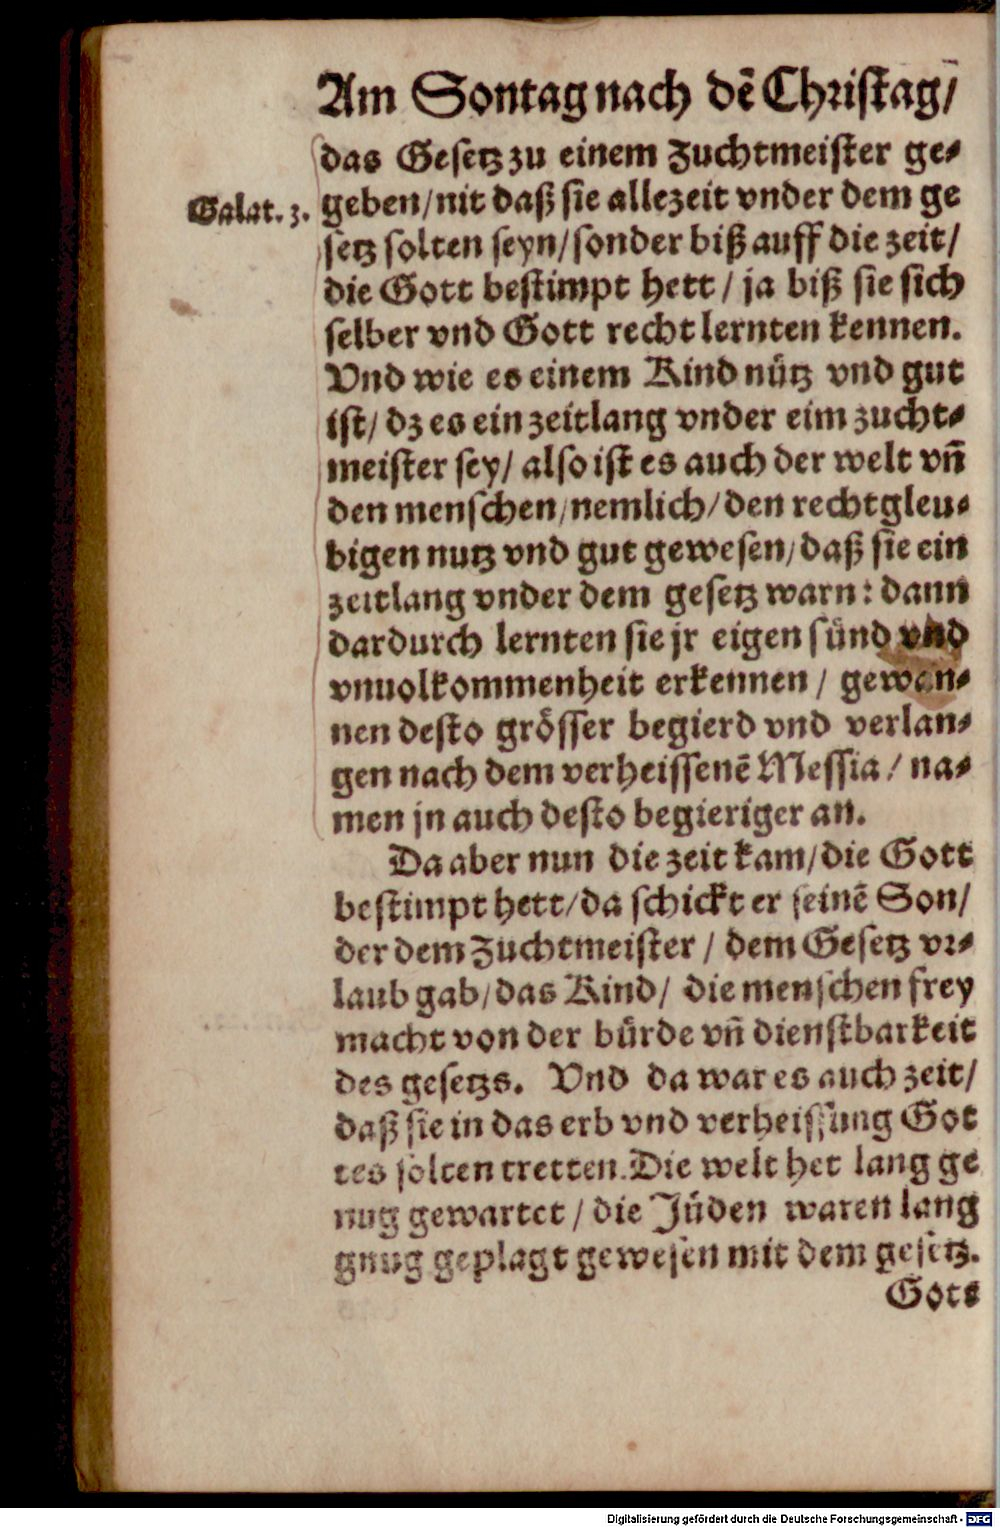 Am Sontag nach dē Christag/
das Gesetz zu einem Zuchtmeister ge⸗
Galat. 3.
geben/nit daß sie allezeit vnder dem ge
setz solten seyn/sonder biß auff die zeit/
die Gott bestimpt hett / ja biß sie sich
selber vnd Gott recht lernten kennen.
Vnd wie es einem Kind nütz vnd gut
ist/ dz es ein zeitlang vnder eim zucht⸗
meister sey/ also ist es auch der welt vñ
den menschen/nemlich/den rechtgleu⸗
bigen nutz vnd gut gewesen/daß sie ein
zeitlang vnder dem gesetz warn: dann
dardurch lernten sie jr eigen sünd vnd
vnuolkommenheit erkennen / gewan⸗
nen desto grösser begierd vnd verlan⸗
gen nach dem verheissenē Messia / na⸗
men jn auch desto begieriger an.
Da aber nun die zeit kam/die Gott
bestimpt hett/da schickt er seinē Son/
der dem Zuchtmeister / dem Gesetz vr⸗
laub gab/das Kind/ die menschen frey
macht von der bürde vñ dienstbarkeit
des gesetzs. Vnd da war es auch zeit/
daß sie in das erb vnd verheissung Got
tes solten tretten. Die welt het lang ge
nug gewartet / die Jüden waren lang
gnug geplagt gewesen mit dem gesetz.
Gots
Digitalisierung gefördert durch die Deutsche Forschungsgemeinschaft - DFG